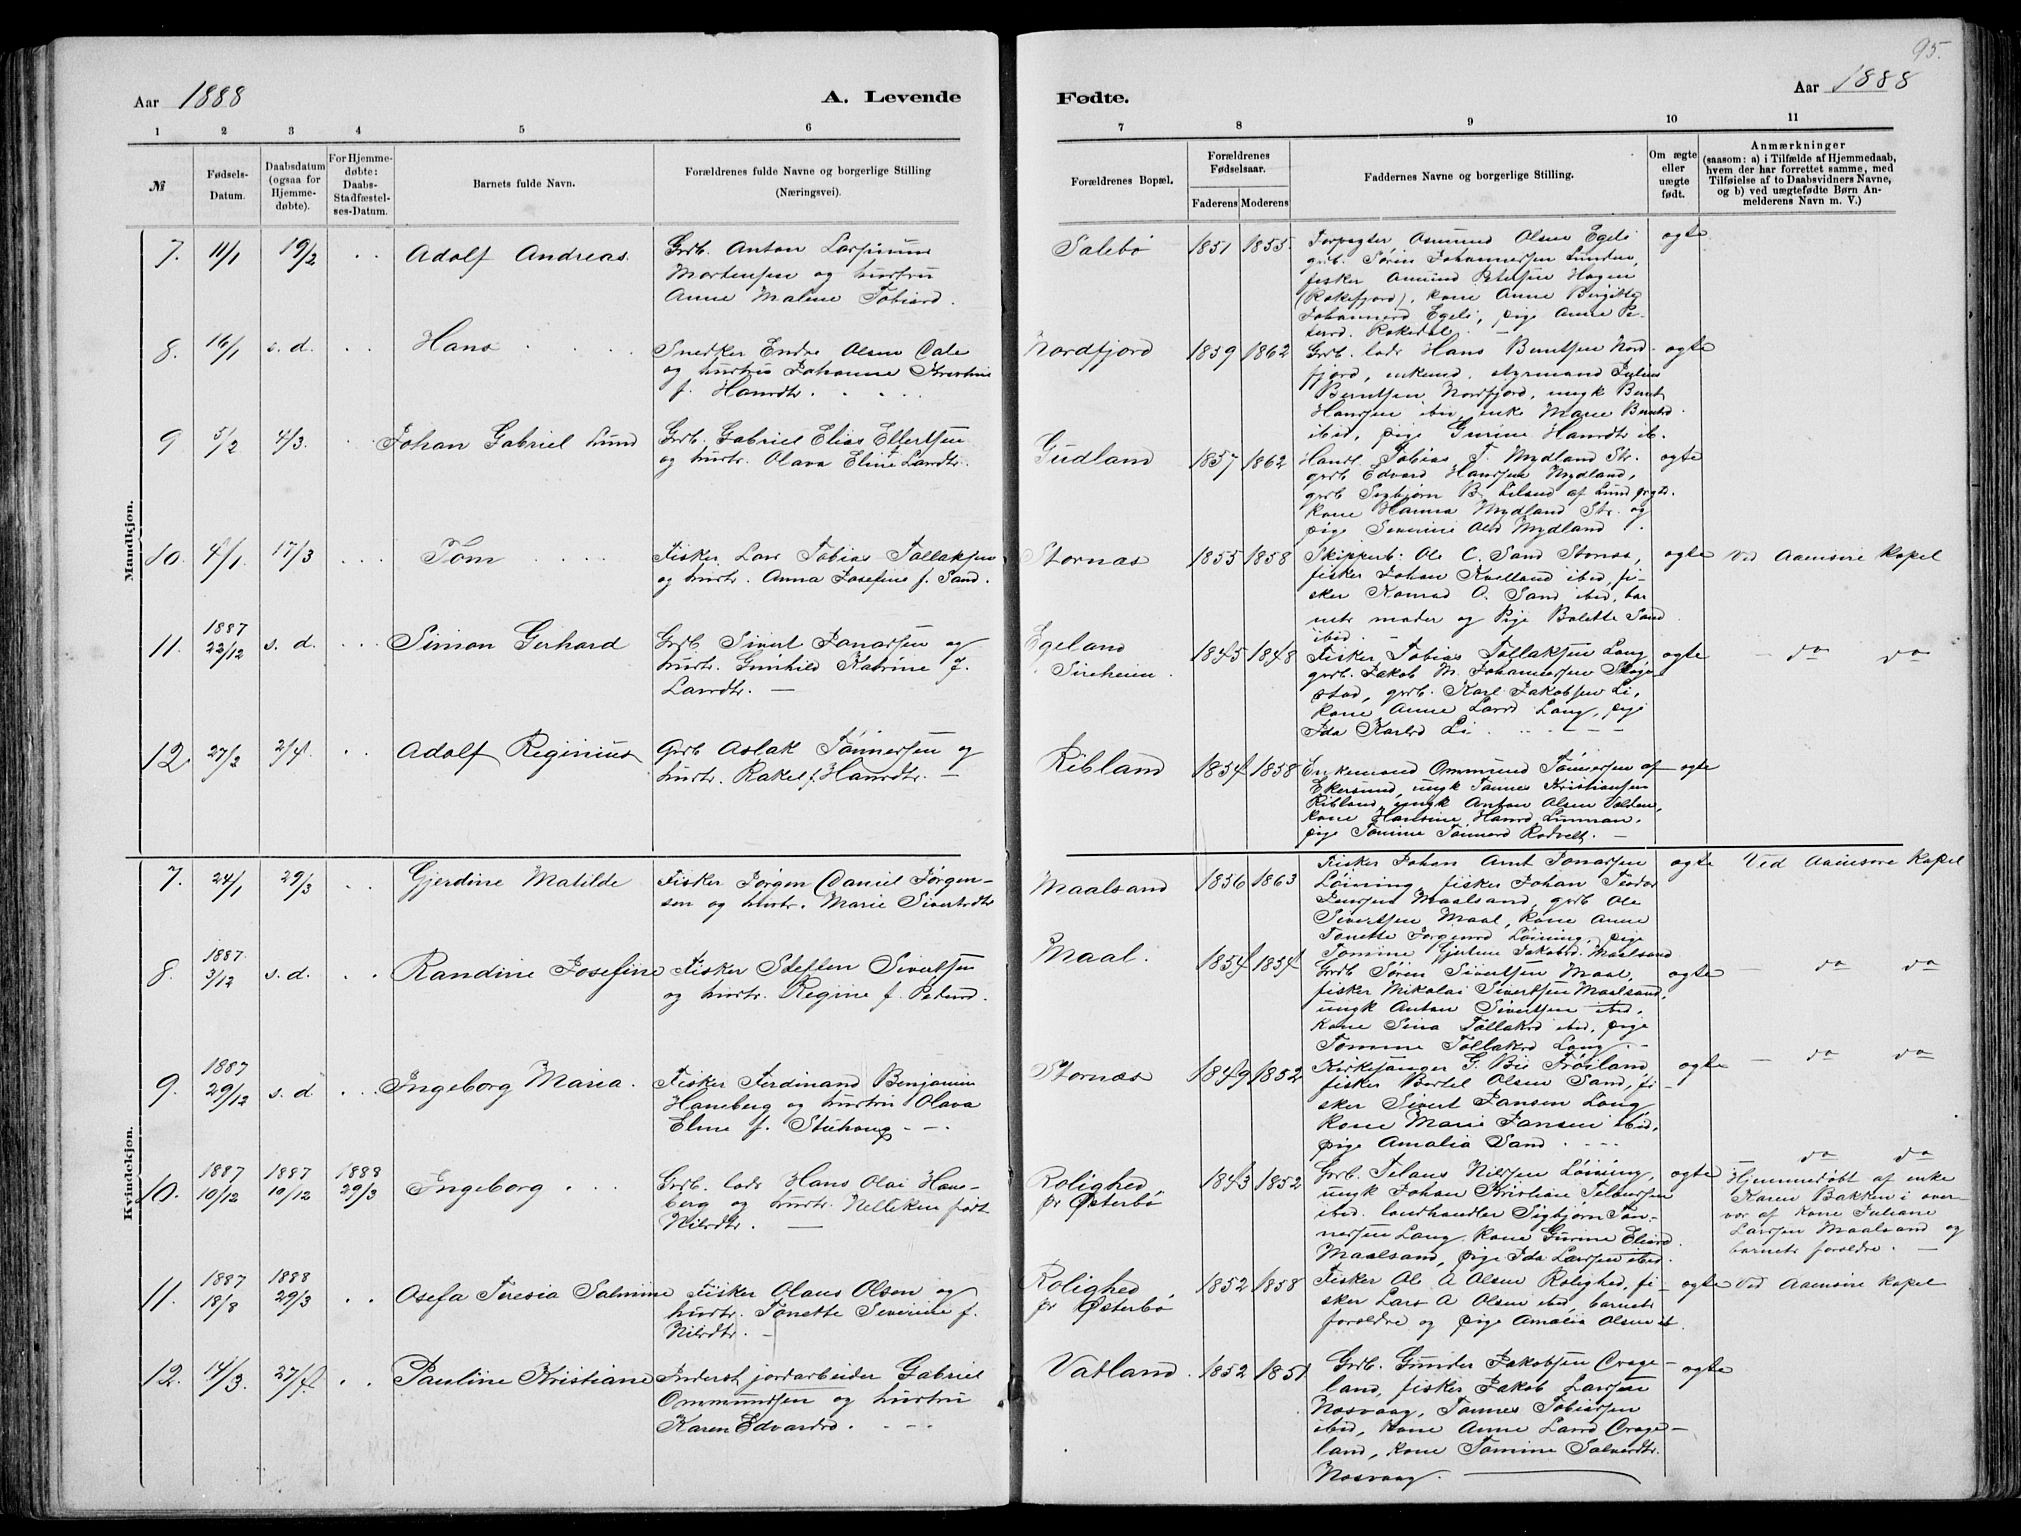 95.
Aar 1888
A. Levende
Fødte.
Aar 1888
1 2 3 4 5 6
7 8 9 10 11
№
Fødsels-
Datum.
Daabsdatum
(ogsaa for
Hjemme-
døbte).
For Hjemme-
døbte:
Daabs-
Stadfæstel-
ses-Datum.
Barnets fulde Navn.
Forældrenes fulde Navne og borgerlige Stilling
(Næringsvei).
Forældrenes Bopæl.
Forældrenes
Fødselsaar.
Faderens Moderens
Faddernes Navne og borgerlige Stilling.
Om ægte
eller
uægte
født.
Anmærkninger
(saasom: a) i Tilfælde af Hjemmedaab,
hvem der har forrettet samme, med
Tilføielse af to Daabsvidners Navne,
og b) ved uægtefødte Børn An-
melderens Navn m. V.)
Mandkjøn.
7. 11/1 19/2 Adolf Andreas.
Grb. Anton
Mortensen og hustru
Anne Malene Tobiasd.
Salebø 1851 1855
Forpagter, Osmund Olsen Egeli
grb. Søren Johannessen Lunden,
fisker Amund Petersen Hagen
(Rekefjord), kone Anne Birgitte
Johannesd Egeli, pige Anne Pe-
tersd. Rekedal.
ægte
8. 16/1 s. d. Hans
Snedker Endre Olsen Dale
og hustru Johanne Kristine
f. Hansdtr.
Nordfjord 1859 1862
Grb. lods Hans Berntsen Nord-
fjord, enkemd. styrmand Julius
Berntsen Nordfjord, ungk Bernt
Hanssen ibid, enke Marie Berntsd.
ibid, pige Gurine Hansdtr ib.
ægte
9 5/2 4/3. Johan Gabriel Lund
Grb. Gabriel Elias Ellertsen
og hustr. Olava Eline Larsdtr.
Gudland 1857 1862
Handl. Tobias T. Mydland Str.
grb Edvard Hanssen Mydland,
grb Sigbjørn B. af Lund prgtr.
kone Hanna Mydland Str. og
pige Severine Mydland.
ægte
10. 4/1. 17/3 Tom
Fisker Lars Tobias Tollaksen
og hustr. Anna Josefine f. Sand.
Stornæs 1855 1858
Skipperb. Ole C. Sand Stornæs,
fisker Johan Kvelland ibid, fi-
sker Konrad O. Sand ibid, bar
nets moder og Pige Bolette Sand
ibid.
ægte
Ved Aamsøre Kapel
11. 1887 22/12 s. d. Simon Gerhard
Grb. Sivert Jonassen og
hustr. Gunhild Katrine f.
Larsdtr.
Egeland Sireheien 1845 1848
Fisker Tobias Tollaksen Long
grb. Jakob M. Johannessen
stad, grb. Karl Jakobsen Li,
kone Anne Larsd Long, pige
Ida Karlsd Li
ægte
do do
12 27/2 2/4. Adolf Reginius
Grb Aslak Tønnessen og
hustr. Rakel f. Hansdtr.
Ribland 1854 1858
Enkemand Ommund Tønnessen af
Ekersund, ungk Tønnes Kristiansen
Ribland, ungk Anton Olsen Volden,
kone Hansine Hansd Linman,
pige Tomine Tønnesd Rodvelt.
ægte
Kvindekjøn.
7. 24/1 29/3 Gjerdine Matilde
Fisker Jørgen Daniel Jørgen-
sen og hustr. Marie Sivertsdtr
Maalsand 1856 1863
Fisker Johan Arnt Jonassen
Løining, fisker Johan Teodor
Jensen Maalsand, grb Ole
Sivertsen Maal, kone Anne
Tonette Jørgensd Løining, pige
Tomine Gjertine Jakobsd. Maalsand
ægte
Ved Aamsøre Kapel
8. 1887. 3/12 s. d. Randine Josefine
Fisker Steffen Sivertsen
og hustr. Regine f. Pedersd.
Maal. 1854 1854
Grb Søren Sivertsen Maal,
fisker Mikolai Sivertsen Maalsand,
ungk Anton Sivertsen ibid,
kone Sina Tollaksd ibid, pige
Tomine Tollaksd Long.
ægte
do do
9. 1887 29/12 s. d Ingeborg Maria.
Fisker Ferdinand Benjamin
Haneberg og hustru Olava
Eline f. Stuhaug
Stornæs 1849 1852
Kirkesanger G. Bie Frøiland
fisker Bertel Olsen Sand, fi-
sker Sivert Jansen Long
kone Marie Jansen ibid,
pige Amalia Sand
ægte
do do
10. 1887 10/12 1887 10/12 1888 29/3 Ingeborg
Grb. lods Hans Olai Hane-
berg og hustr. Nelliken født
Nilsdtr.
Rolighed pr Østerbø 1843 1852
Grb. Nilssen Løining,
ungk Johan Kristian
ibid. landhandler Sigbjørn Tøn-
nessen Long, kone Gurine Eliasd.
Maalsand, pige Ida Larssen ibid.
ægte
do do
Hjemmedøbt af enke
Karen Bakken i over-
vær af kone Juliane
Larssen Maalsand og
barnets forældre.
11. 1887 18/8 1888 29/3 Osefa Teresia Salmine
Fisker Olaus Olsen og
hustr. Tonette Severine f.
Nilsdtr.
Rolighed pr Østerbø 1852 1858
Fisker Ole A Olsen Rolighed, fi-
sker Lars A Olsen ibid, barnets
forældre og pige Amalia Olsen ib.
ægte
Ved Aamsøre Kapel
12. 14/3. 27/4. Pauline Kristiane
Inderst jordarbeider Gabriel
Ommundsen og hustru
Karen Edvardsd.
Vatland. 1852 1851
Grb. Gunder Jakobsen Drage-
land, fisker Jakob Larssen
Nosvaag, Tønnes Tobiassen
ibid, kone Anne Larsd Drage-
land, kone Tomine Salvesdtr.
Nosvaag.
ægte